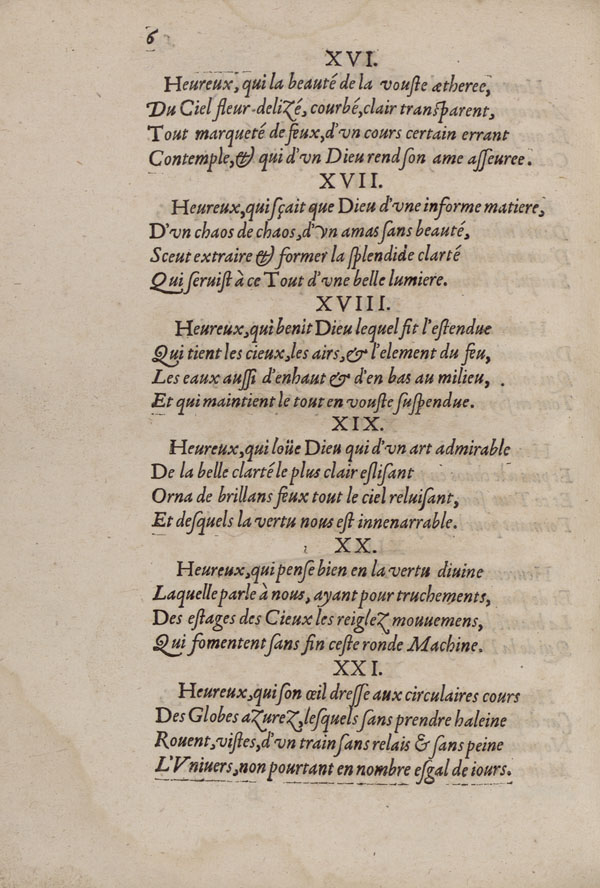 6
XVI.
Heureux, qui la beauté de la vouſte ætheree,
Du Ciel fleur-delizé, courbé, clair tranſparent,
Tout marqueté de feux, d'vn cours certain errant
Contemple, & qui d'vn Dieu rend ſon ame aſſeuree.
XVII.
Heureux, qui ſçait que Dieu d'vne informe matiere,
D'vn chaos de chaos, d'vn amas ſans beauté,
Sceut extraire & former la ſplendide clarté
Qui ſeruiſt à ce Tout d'vne belle lumiere.
XVIII.
Heureux, qui benit Dieu lequel fit l'eſtendue
Qui tient les cieux, les airs, & l'element du feu,
Les eaux auſſi d'enhaut & d'en bas au milieu,
Et qui maintient le tout en vouſte ſuſpendue.
XIX.
Heureux, qui loüe Dieu qui d'vn art admirable
De la belle clarté le plus clair eſliſant
Orna de brillans feux tout le ciel reluiſant,
Et deſquels la vertu nous eſt innenarrable.
XX.
Heureux, qui penſe bien en la vertu diuine
Laquelle parle à nous, ayant pour truchements,
Des eſtages des Cieux les reiglez mouuemens,
Qui fomentent ſans fin ceſte ronde Machine.
XXI.
Heureux, qui ſon œil dreſſe aux circulaires cours
Des Globes azurez, leſquels ſans prendre haleine
Rouent, viſtes, d'vn train ſans relais & ſans peine
L'Vniuers, non pourtant en nombre eſgal de iours.